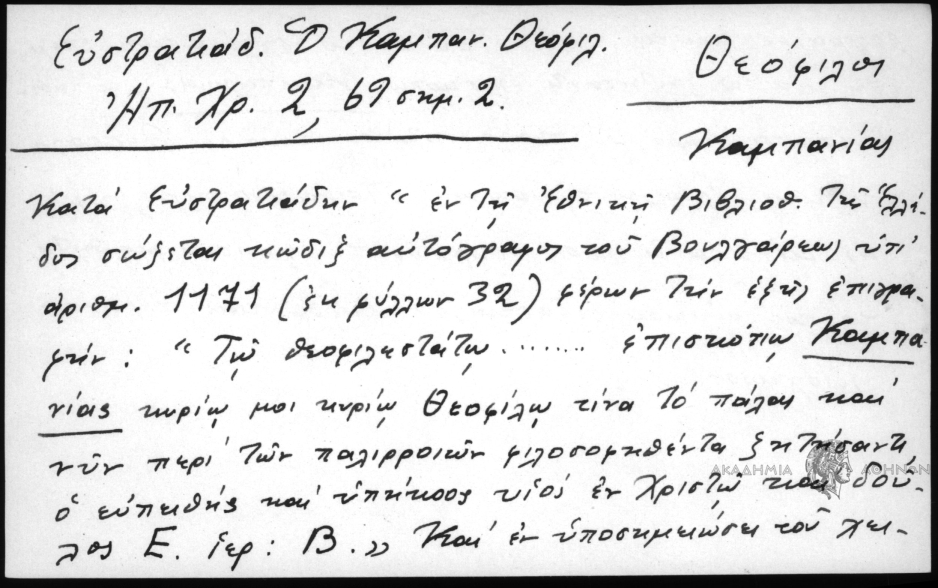 Εὐστρατιάδ. Ὁ Καμπαν. Θεόφιλ.
Ἠπ. Χρ. 2, 69 σημ. 2.
Θεόφιλος
Καμπανίας
Κατά Εὐστρατιάδην "ἐν τῇ Ἐθνικῇ Βιβλιοθ. τῆς Ἑλλά-
δος σώζεται κῶδιξ αὐτόγραφος τοῦ Βουλγάρεως ὑπ'
ἀριθμ. 1171 (ἐκ φύλλων 32) φέρων τήν ἑξῆς ἐπιγρα-
φήν: "Τῷ θεοφιλεστάτῳ ....... ἐπισκόπῳ Καμπα-
νίας κυρίῳ μοι κυρίῳ Θεοφίλῳ τίνα τό πάλαι καί
νῦν περί τῶν παλιρροιῶν φιλοσοφηθέντα ζητήσαντι
ὁ εὐπειθής καί ὑπήκοος υἱός ἐν Χριστῷ καί δοῦ-
λος Ε. ἱερ: Β.» Καί ἐν ὑποσημειώσει τοῦ
ΑΚΑΔΗΜΙΑ ΑΘΗΝΩΝ